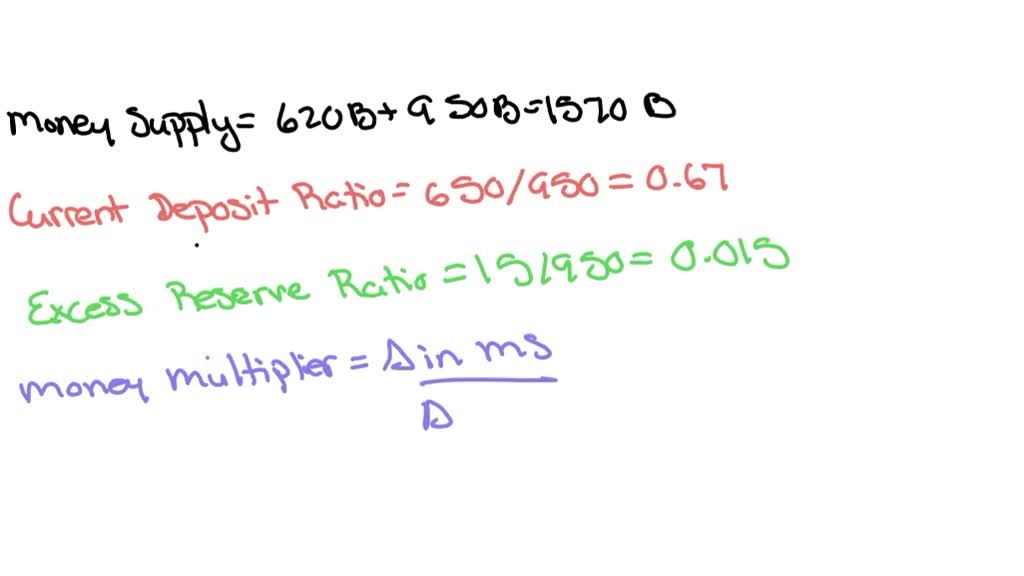 money Supply= 620B+ 950B=1570 B
Current Deposit Ratio= 650/950 = 0.67
Excess Reserve Ratio = 15/950= 0.015
money multiplier = Δ in ms
Δ